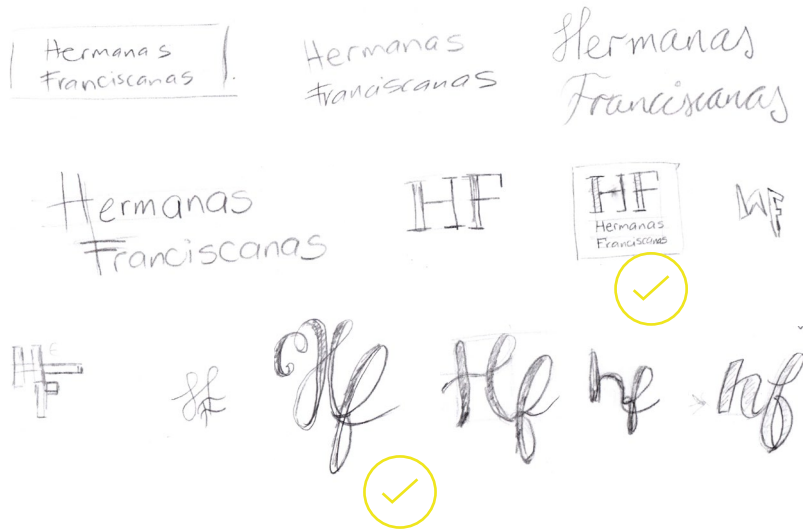 Hermanas
Franciscanas
Hermanas
Franciscanas
Hermanas
Franciscanas
Hermanas
Franciscanas
HF
HF
Hermanas
Franciscanas
HF
HF
Hf
Hf
hf
hf